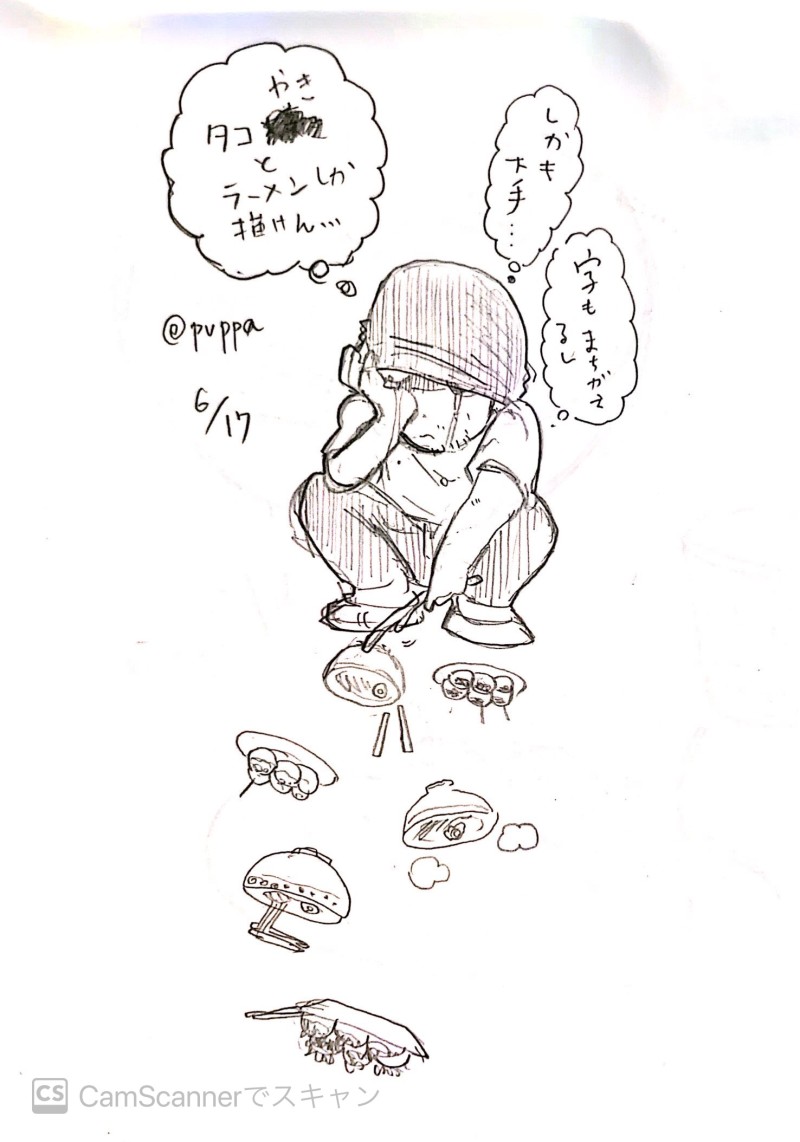 やき
タコ
と
ラーメンしか
描けん…
しかも
下手…
字もまちがえ
るし
@puppa
6/17
CS CamScannerでスキャン